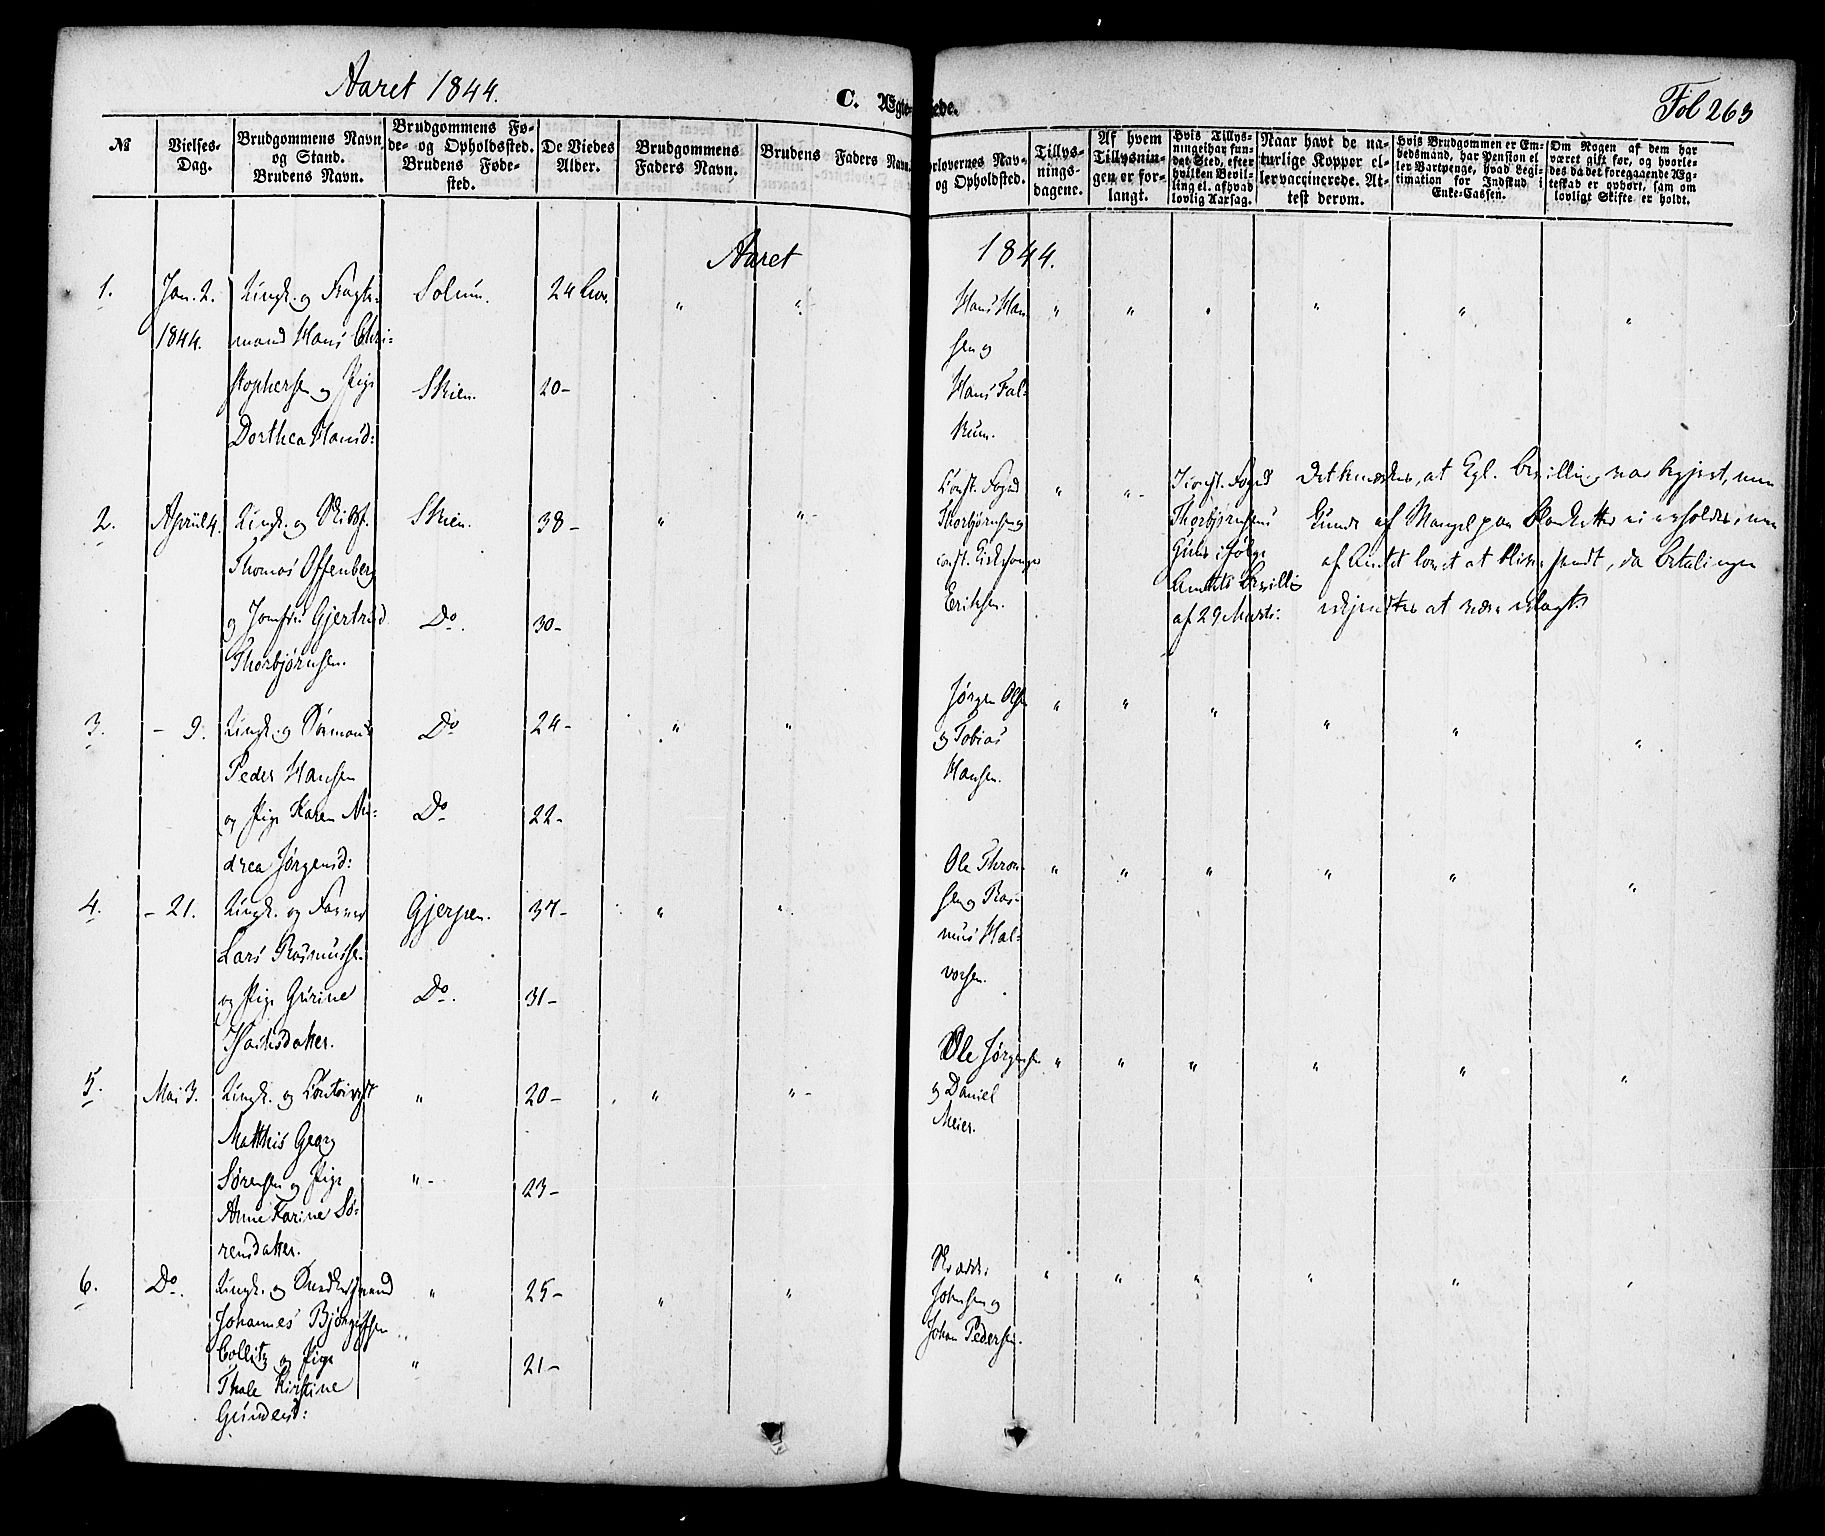 Aaret 1844.
C. Ægteviede.
Fol 263
№
Vielses-
Dag.
Brudgommens Navn
og Stand.
Brudens Navn.
Brudgommens Fø-
de- og Opholdssted.
Brudens Føde-
sted.
De Viedes
Alder.
Brudgommens
Faders Navn.
Brudens Faders Navn.
Forlovernes Nav-
og Opholdsted.
Tillys-
nings-
dagene.
Af hvem
Tillysnin-
gen er for-
langt.
Hvis Tillys-
ningei har fun-
det Sted, efter
hvilken Bevil-
ling el. afhvad
lovlig Aarsag.
Naar havt de na-
turlige Kopper el-
ler vaccinerede. At-
test derom.
Hvis Brudgommen er Em-
bedsmand, har Pension el-
ler Vartpenge, hvad Legi-
timation for Indskud i
Enke-Cassen.
Om Nogen af dem har
været gift før, og hvorle-
des da det foregaaende Æg-
teskab er ophørt, sam om
lovligt Skifte er holdt.
Aaret 1844.
1. Jan. 2. Ungk. og Fragt- Solum. 24
1844. mand Hans Chri-
stophersen og Pige Skien. 20-
Dorthea Hansd:
Hans Han
sen og
Hans Fal-
kum.
2. April 4. Ungk. og Skibsf. Skien. 38-
Thomas Offenberg
og Jomfru Gjertrud Do. 30-
Thorbjørnsen.
Const. Foged
Thorbjørnsen og
const.
Eriksen.
I const. Foged
Thorbjørnsens
Huus ifølge
Amtets Bevillin
af 29 Marts:
Det bemærkes, at Kgl. Bevilling var begjert, men
Grundet af Mangel paa Blanketter ei erholdes, men
af Amtet lovet at blive sendt, da betalingen
at være erlagt.
3. - 9. Ungk. og Sømand Do 24-
Peder Hansen
og Pige Karen An- Do 22-
drea Jørgensd:
Jørgen Olsen
og Tobias
Hansen.
4. - 21. Ungk. og Farver Gjerpen. 37-
Lars Rasmussen
og Pige Gurine Do. 31-
Isachsdatter.
Ole Thron-
sen og Ras-
mus Hal-
vorsen.
5. Mai 3. Ungk. og Contoirist 20-
Matthis Georg
Sørensen og Pige 23-
Anne Karine Sø-
rensdatter.
Ole Jørgensen
og Daniel
Meier.
6. Do. Ungk. og Snedkersvend 25-
Johannes
Collitz og Pige 21-
Thale Kirstine
Gundersd:
Johnsen og
Johan Pedersen.